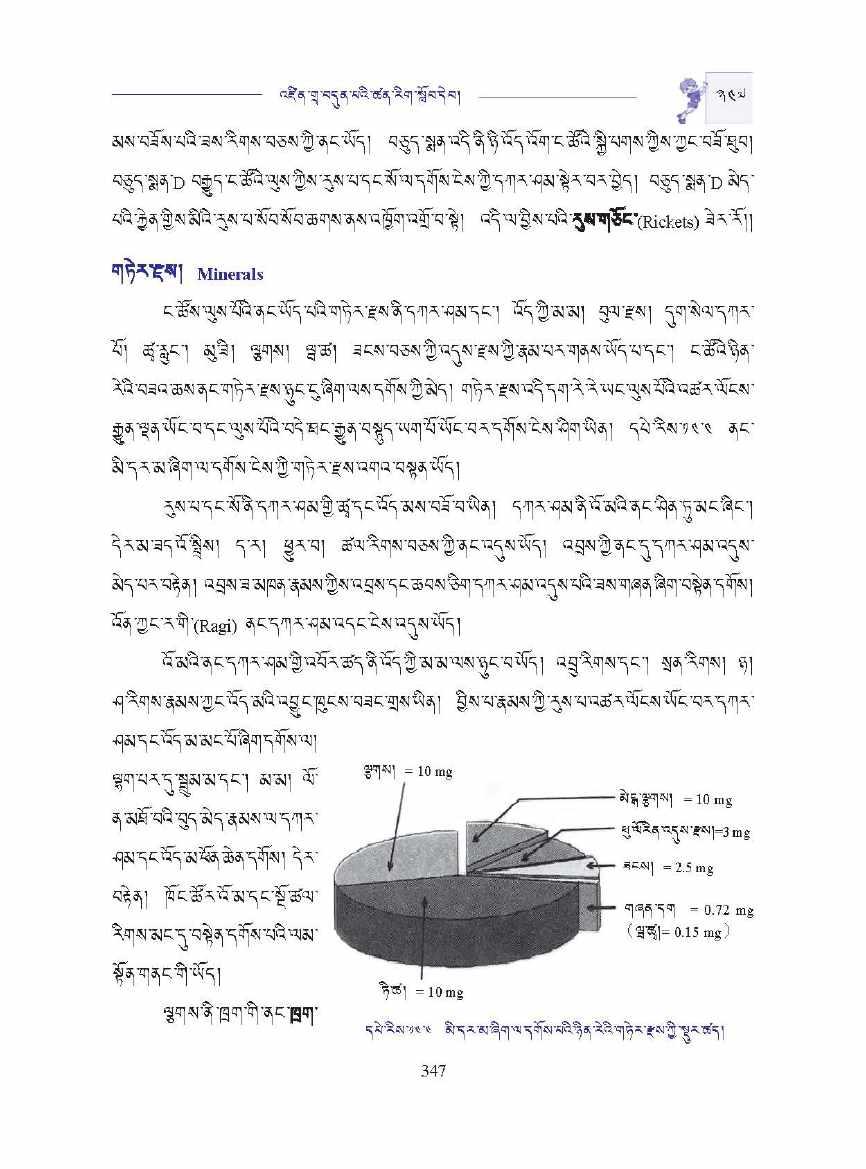 འཛིན་གྲྭ་བདུན་པའི་ཚན་རིག་སློབ་དེབ།
༣༤༧
མས་བཟོས་པའི་ཟས་རིགས་བཅས་ཀྱི་ནང་ཡོད། བཅུད་སྨན་འདི་ནི་ཉི་འོད་འོག་ང་ཚོའི་སྐྱི་པགས་ཀྱིས་ཀྱང་བཟོ་ཐུབ།
བཅུད་སྨན་D བརྒྱུད་ང་ཚོའི་ལུས་ཀྱིས་རུས་པ་དང་སོ་ལ་དགོས་ངེས་ཀྱི་དཀར་ཤམ་སྟེར་བར་བྱེད། བཅུད་སྨན་D མེད་
པའི་རྐྱེན་གྱིས་མིའི་རུས་པ་སོབ་སོབ་ཆགས་ནས་འཁྱོག་འགྲོ་བ་སྟེ། འདི་ལ་བྱིས་པའི་རུས་གཅོང་(Rickets) ཟེར་རོ།།
གཏེར་རྫས། Minerals
ང་ཚོས་ལུས་པོའི་ནང་ཡོད་པའི་གཏེར་རྫས་ནི་དཀར་ཤམ་དང་། འོད་ཀྱི་མ་མ། བུལ་རྫས། དུག་སེལ་དཀར་
པོ། ཚྭ་རླུང་། མུ་ཟི། ལྕགས། ལྦ་ཚ། ཟངས་བཅས་ཀྱི་འདུས་རྫས་ཀྱི་རྣམ་པར་གནས་ཡོད་པ་དང་། ང་ཚོའི་ཉིན་
རེའི་བཟའ་ཆས་ནང་གཏེར་རྫས་ཉུང་ངུ་ཞིག་ལས་དགོས་ཀྱི་མེད། གཏེར་རྫས་འདི་དག་རེ་རེ་ཡང་ལུས་པོའི་འཚར་ལོངས་
རྒྱུན་ལྡན་ཡོང་བ་དང་ལུས་པོའི་བདེ་ཐང་རྒྱུན་བསྟུད་ཡག་པོ་ཡོང་བར་དགོས་ངེས་ཤིག་ཡིན། དཔེ་རིས་༡༤་༤ ནང་
མི་དར་མ་ཞིག་ལ་དགོས་ངེས་ཀྱི་གཏེར་རྫས་འགའ་བསྟན་ཡོད།
རུས་པ་དང་སོ་ནི་དཀར་ཤམ་གྱི་ཚྭ་དང་འོད་མས་བཟོ་བ་ཡིན། དཀར་ཤམ་ནི་འོ་མའི་ནང་ཤིན་ཏུ་མང་ཞིང་།
དེར་མ་ཟད་འོ་སྤྲིས། ད་ར། ཕྱུར་བ། ཚལ་རིགས་བཅས་ཀྱི་ནང་འདུས་ཡོད། འབྲས་ཀྱི་ནང་དུ་དཀར་ཤམ་འདུས་
མེད་པར་བརྟེན། འབྲས་ཟ་མཁན་རྣམས་ཀྱིས་འབྲས་དང་ཆབས་ཅིག་དཀར་ཤམ་འདུས་པའི་ཟས་གཞན་ཞིག་བསྟེན་དགོས།
འོན་ཀྱང་ར་གི་(Ragi) ནང་དཀར་ཤམ་འདང་ངེས་འདུས་ཡོད།
འོ་མའི་ནང་དཀར་ཤམ་གྱི་འབོར་ཚད་ནི་འོད་ཀྱི་མ་མ་ལས་ཉུང་བ་ཡོད། འབྲུ་རིགས་དང་། སྲན་རིགས། ཉ།
ཤ་རིགས་རྣམས་ཀྱང་འོད་མའི་འབྱུང་ཁུངས་བཟང་གྲས་ཡིན། བྱིས་པ་རྣམས་ཀྱི་རུས་པ་འཚར་ལོངས་ཡོང་བར་དཀར་
ཤམ་དང་འོད་མ་མང་པོ་ཞིག་དགོས་ལ།
ལྷག་པར་དུ་སྦྲུམ་མ་དང་། མ་མ། ལོ་
ན་མཐོ་བའི་བུད་མེད་རྣམས་ལ་དཀར་
ཤམ་དང་འོད་མ་ཕོན་ཆེན་དགོས། དེར་
བརྟེན། ཁོང་ཚོར་འོ་མ་དང་སྔོ་ཚལ་
རིགས་མང་དུ་བསྟེན་དགོས་པའི་ལམ་
སྟོན་གནང་གི་ཡོད།
ལྕགས་ནི་ཁྲག་གི་ནང་ཁྲག་
ལྕགས། = 10 mg
མེད་ལྕགས། = 10 mg
ཕུ་ལོ་རིན་འདུས་རྫས།=3 mg
ཟངས། = 2.5 mg
གཞན་དག = 0.72 mg
(ལྦ་ཚྭ།= 0.15 mg)
ཏི་ཚ། = 10 mg
དཔེ་རིས་༡༤་༤ མི་དར་མ་ཞིག་ལ་དགོས་པའི་ཉིན་རེའི་གཏེར་རྫས་ཀྱི་སྤུར་ཚད།
347